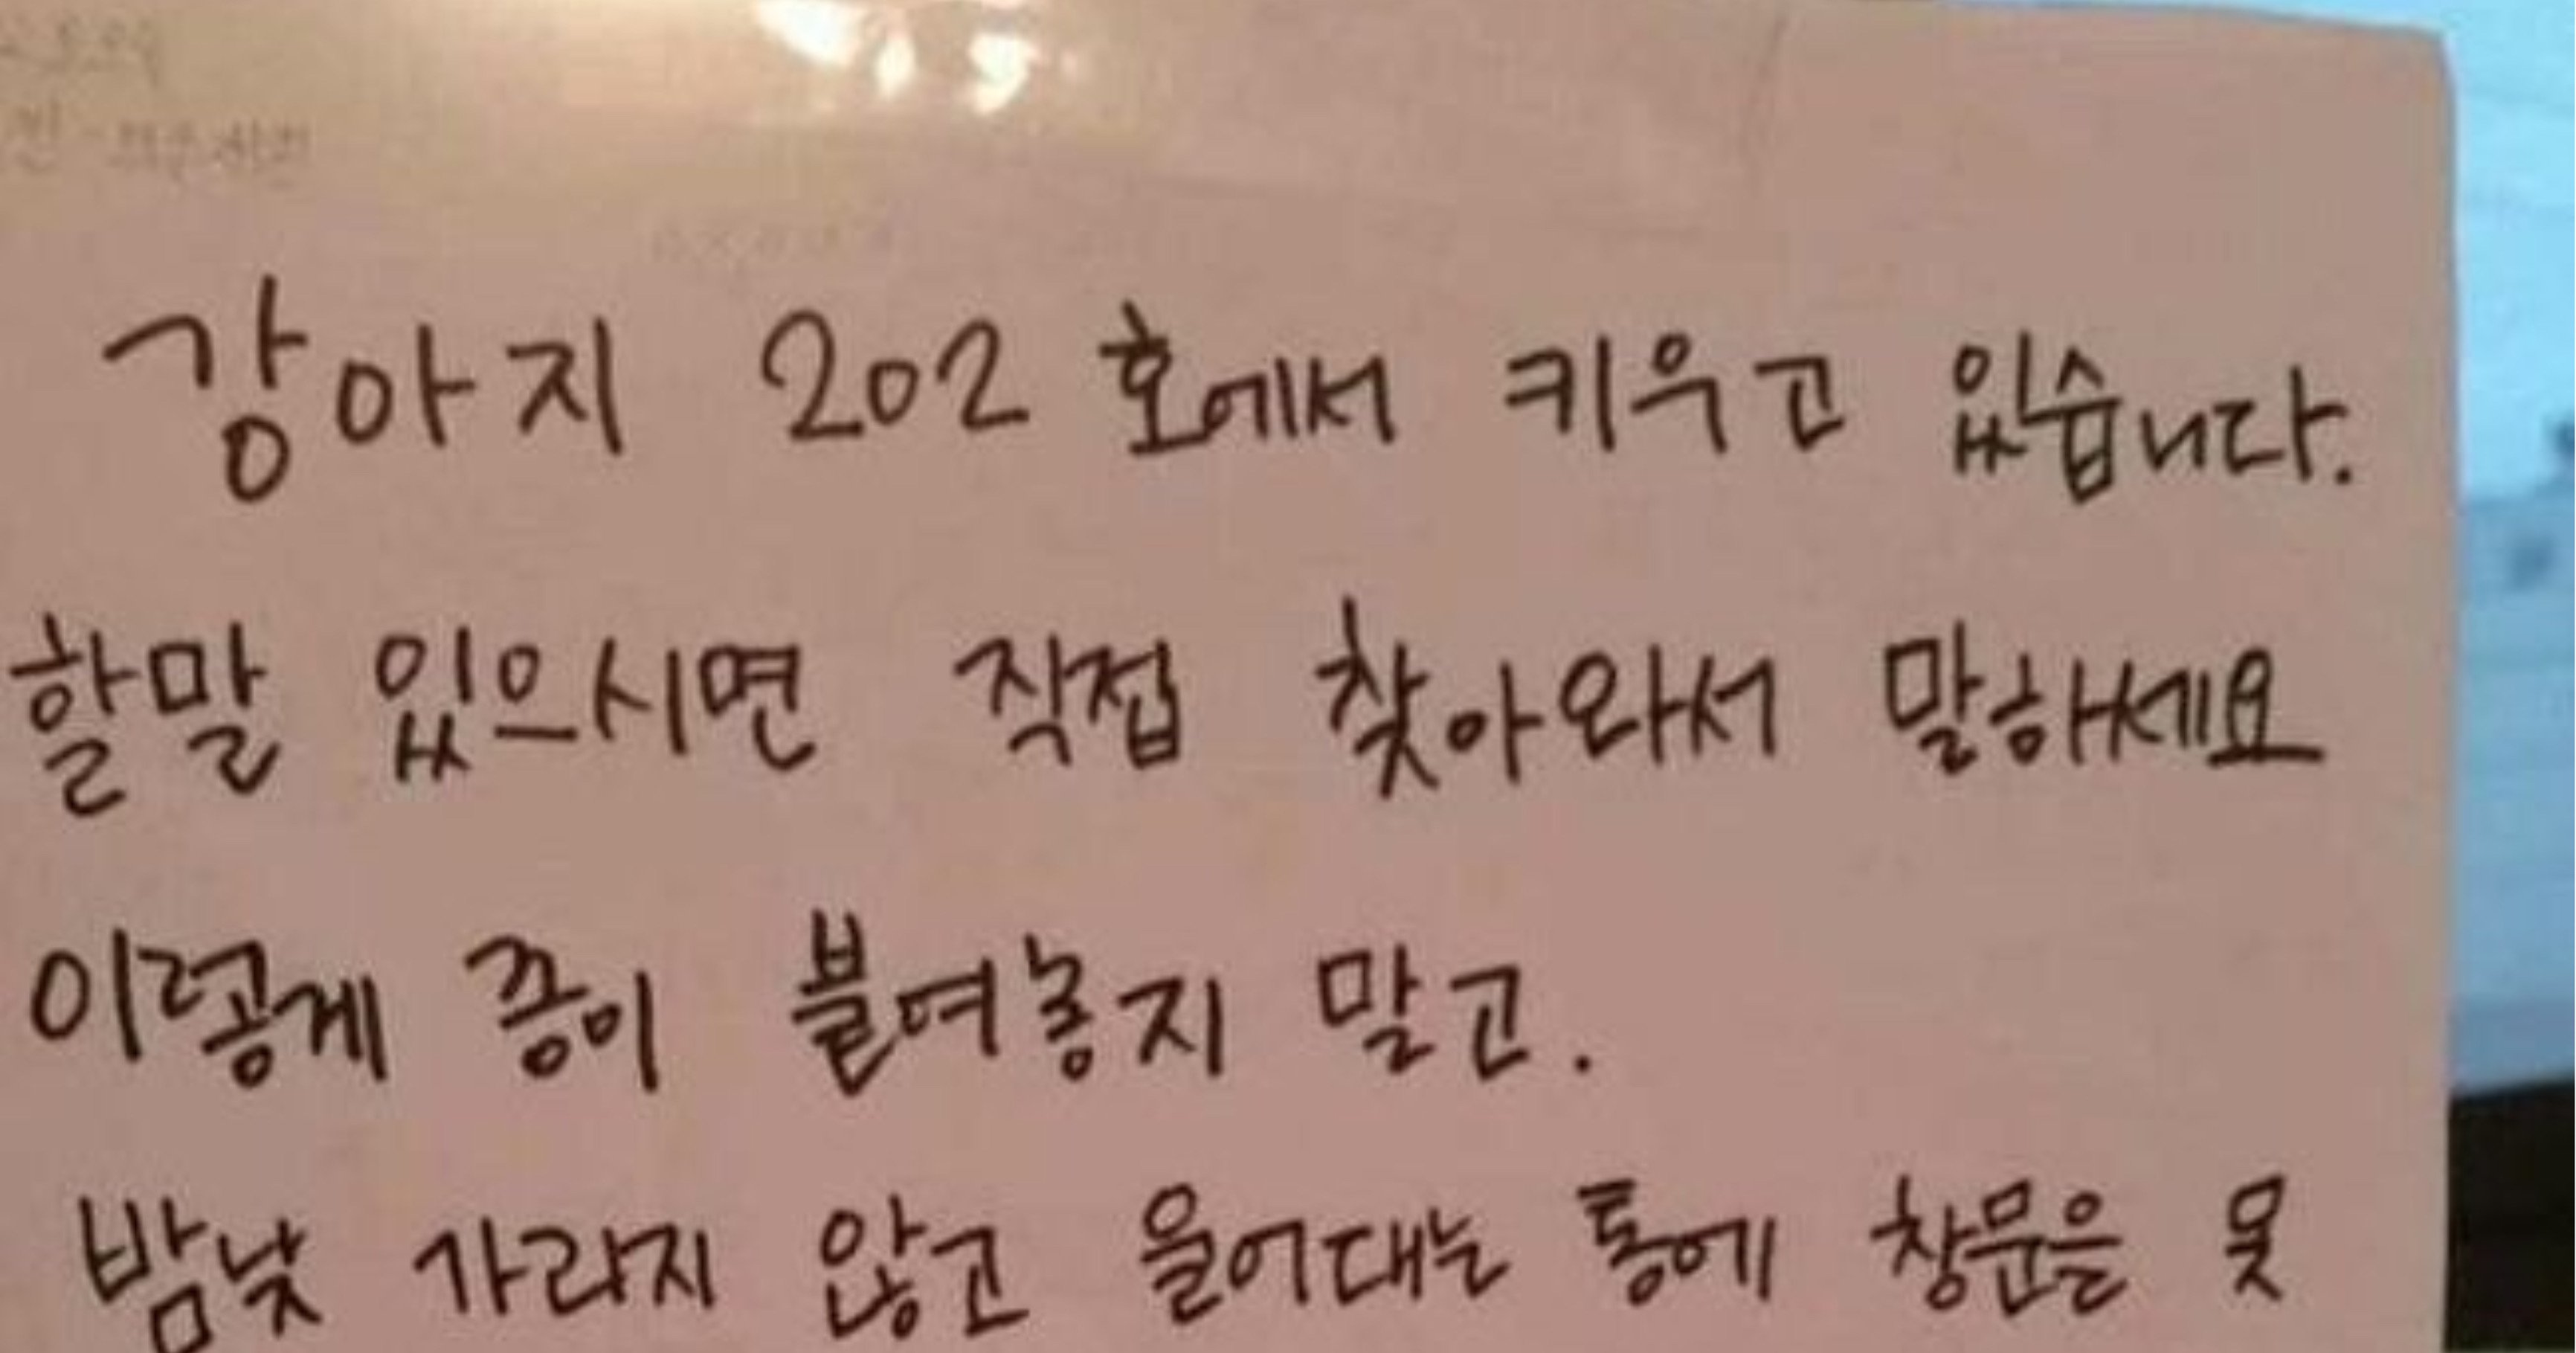 강아지 202 호에서 키우고 있습니다.
할말 있으시면 직접 찾아와서 말하세요
이렇게 종이 붙여놓지 말고.
밤낮 가리지 않고 울어대는 통에 창문을 못